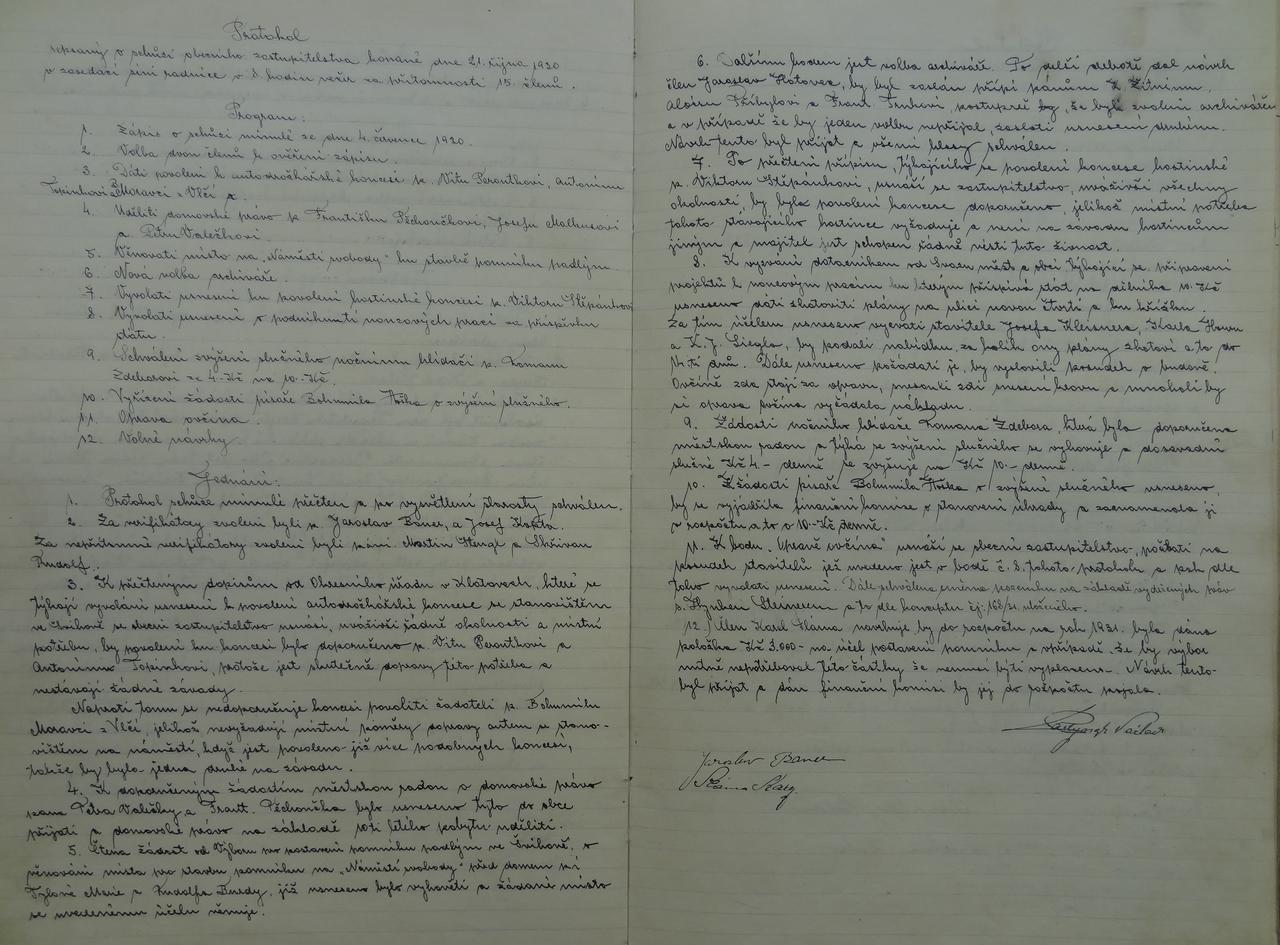 Protokol
sepsaný o schůzi obecního zastupitelstva konané dne 21. října 1920
v zasedací síni radnice v 8. hodin večer za přítomnosti 15. členů.
Program:
1. Zápis o schůzi minulé ze dne 4. července 1920.
2. Volba dvou členů k ověření zápisu.
3. Dáti povolení k autodrožkářské koncesi p. Vítu Perontkovi, Antonínu
Topinkovi a Moravci z Vlčí
4. Uděliti domovské právo p. Františku Pěchoučkovi, Josefu
a Petru Valečkovi.
5. Věnovati místo na „Náměstí svobody" ku stavbě pomníku padlým.
6. Nová volba archiváře.
7. Vyvolati usnesení ku povolení hostinské koncesi p. Viktoru Štěpánkovi
8. Vyvolati usnesení o podniknutí nouzových prací za příspěvku
státu.
9. Schválení zvýšení služného nočnímu hlídači p. Romanu
Zdeborovi ze 4-Kč na 10-Kč.
10. Vyřízení žádosti písaře Bohumila o zvýšení služného.
11. Oprava ovčína.
12. Volné návrhy
Jednání:
1. Protokol schůze minulé přečten a po vysvětlení starosty schválen.
2. Za verifikátory zvoleni byli p. Jaroslav Baner, a Josef
Za nepřítomné verifikátory zvoleni byli páni Martin Hengl a Skřivan
Rudolf.
3. K přečteným dopisům od Okresního úřadu v Klatovech, které se
týkají vyvolání usnesení k povolení autodrožkářské koncese se stanovištěm
ve Švihově se obecní zastupitelstvo usnáší, uváživši řádně okolnosti a místní
potřebu, by povolení ku koncesi bylo doporučeno p. Vítu Perontkovi a
Antonínu Topinkovi, protože jest skutečně dopravy této potřeba a
nestávají žádné závady.
Naproti tomu se nedoporučuje koncesi povoliti žadateli p. Bohumilu
Moravci z Vlčí, jelikož nevyžadují místní poměry dopravy autem se stano-
vištěm na náměstí, když jest povoleno již více podobných koncesí,
takže by byla jedna druhé na závadu.
4. K doporučeným žádostím městskou radou o domovské právo
pana Petra Valečky a Frant. Pěchoučka bylo usneseno tyto do obce
přijati a domovské právo na základě 10ti letého pobytu uděliti.
5. Čtena žádost od Výboru pro postavení pomníku padlým ve Švihově, o
věnování místa pro stavbu pomníku na „Náměstí svobody" před domem pí
Tylové Marie a Rudolfa Burdy, jíž usneseno bylo vyhověti a žádané místo
se uvedenému účelu věnuje.
6. Dalším bodem jest volba archiváře. Po delší debatě dal návrh
člen Jaroslav Kotovec, by byl zaslán přípis pánům
Aloisu Přibylovi a Frant. Trnkovi, postupně, že byli zvoleni archivářem
a v případě že by jeden volbu nepřijal, zaslati usnesení druhému.
Návrh tento byl přijat a všemi hlasy schválen.
7. Po přečtení přípisu, týkajícího se povolení koncese hostinské
p. Viktoru Štěpánkovi, usnáší se zastupitelstvo, uváživši všechny
okolnosti, by bylo povolení koncese doporučeno, jelikož místní potřeba
tohoto stávajícího hostince vyžaduje a není na závadu hostincům
jiným a majitel jest schopen řádně vésti tuto živnost.
8. K vyzvání dotazníkem od Svazu měst a obcí týkající se připravení
projektů k nouzovým pracím ku kterým přispívá stát na dělníka 10-Kč
usneseno dáti zhotoviti plány na ulici novou čtvrtí a ku křížku.
Za tím účelem usneseno vyzvati stavitele Josefa Kleisnera, Karla
a K.J. Siegla, by podali nabídku, za kolik ony plány zhotoví a to do
14.ti dnů. Dále usneseno požádati je, by vyslovili posudek o budově
Ovčíně zda stojí za opravu, nesouli zdi sneseni krovu a mnoholi by
si oprava ovčína vyžádala nákladu.
9. Žádosti nočního hlídače Romana Zdebora, která byla doporučena
městskou radou a týká se zvýšení služného se vyhovuje a dosavadní
služné Kč 4.- denně, se zvyšuje na Kč 10.- denně.
10. K žádosti písaře Bohumila o zvýšení služného usneseno,
by se vyjádřila finanční komise o stanovení úhrady a zaznamenala ji
v rozpočtu, a to o 10-Kč denně.
11. K bodu „Opravě ovčína" usnáší se obecní zastupitelstvo, počkati na
posudek stavitelů jež uvedeno jest v bodě č. 8. tohoto protokolu a pak dle
toho vyvolati usnesení. Dále schválena směna pozemku na základě vydržených práv
s Hynkem Steinerem a to dle konceptu čj. 168/31. uloženého.
12.) Člen Karel Sláma navrhuje, by do rozpočtu na rok 1931. byla dána
položka Kč 3.000- na účel postavení pomníku a v případě že by výbor
nutně nepotřeboval této částky že nemusí býti vyplacena. Návrh tento
byl přijat a dán finanční komisi by jej do rozpočtu pojala.
Václav
Jaroslav Baner
Sláma Karel